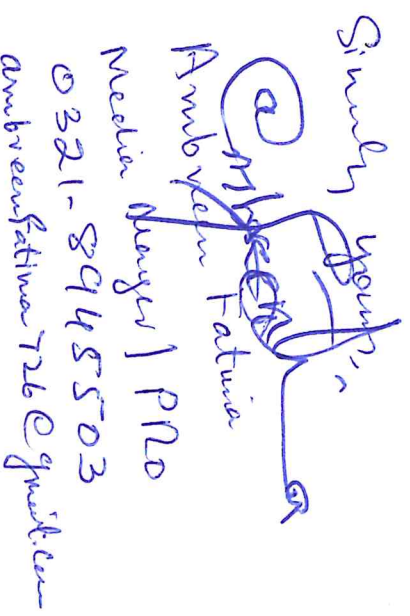 Sincerely yours,
Ambreen Fatima
Media Manager / PRO
0321-8945503
ambreenfatima726@gmail.com